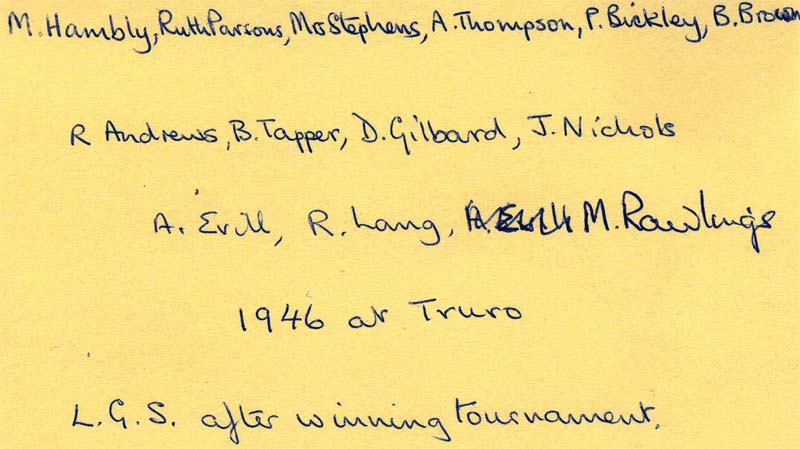 M. Hambly, Ruth Parsons, Mrs Stephens, A. Thompson, P. Bickley, B. Brown
R Andrews, B. Tapper, D. Gilbard, J. Nichols
A. Evill, R. Lang, M. Rawlings
1946 at Truro
L.G.S. after winning tournament.